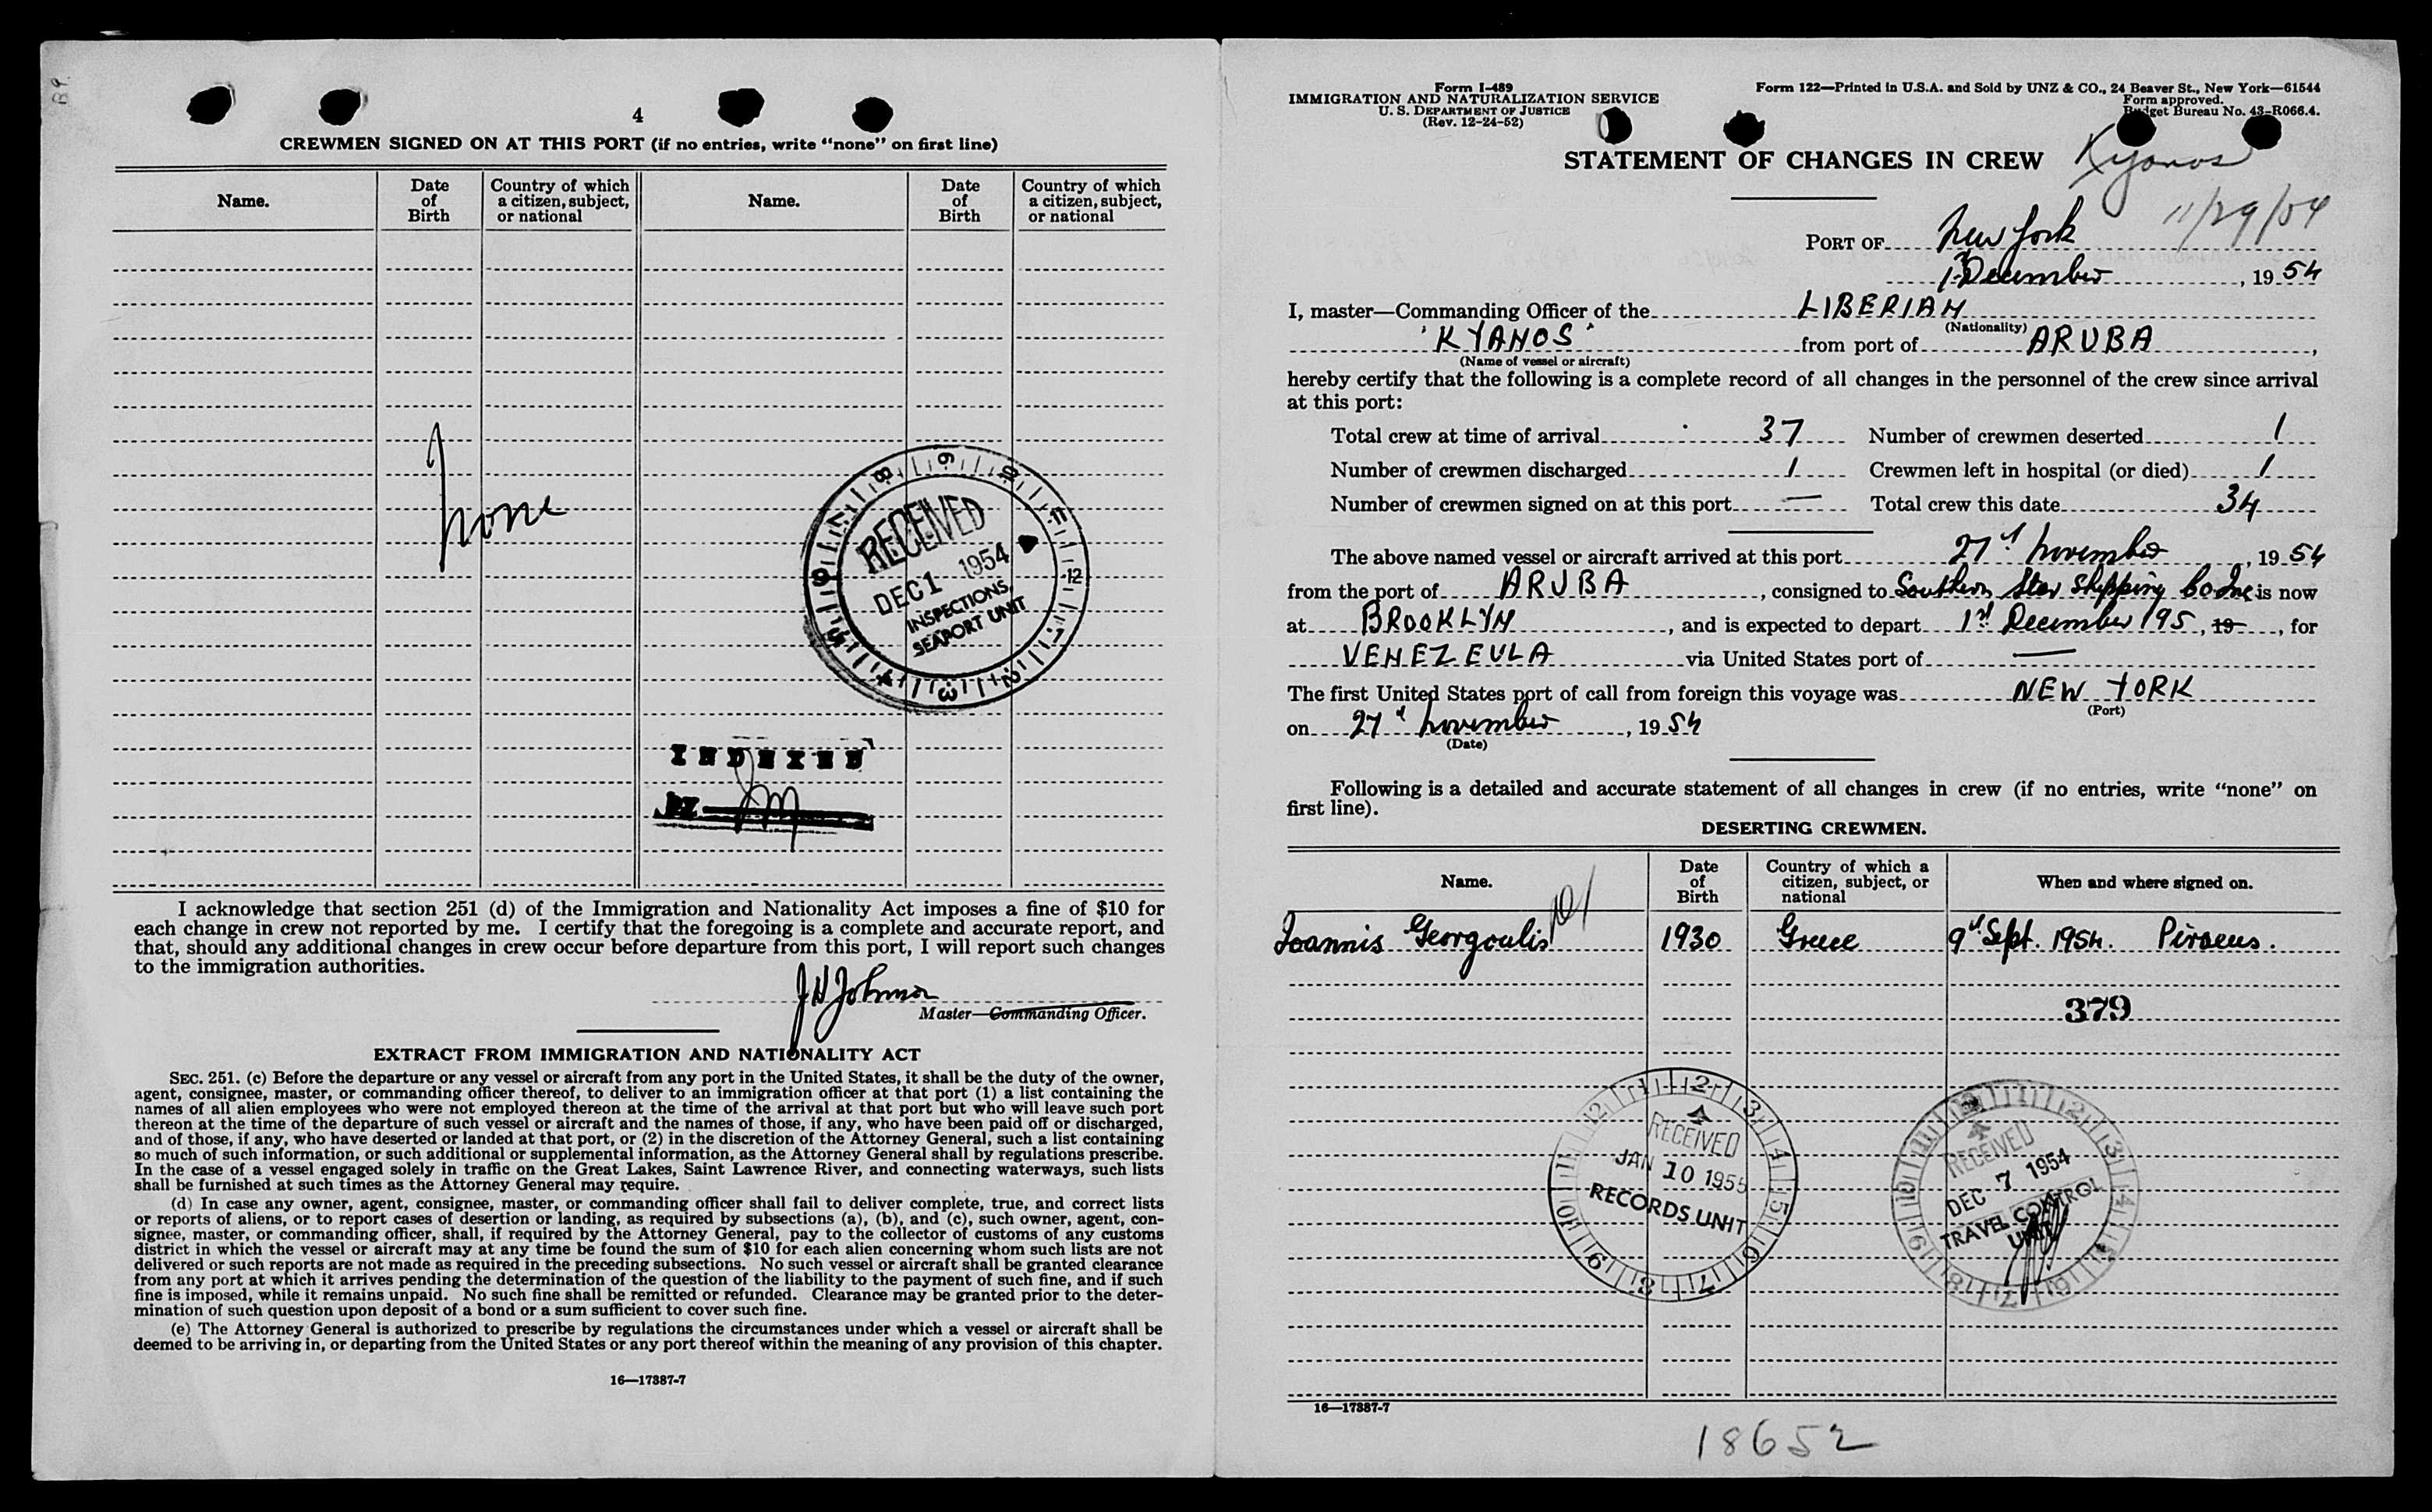 B9
4
CREWMEN SIGNED ON AT THIS PORT (if no entries, write “none” on first line)
Name. Date of Birth Country of which a citizen, subject, or national Name. Date of Birth Country of which a citizen, subject, or national
None
RECEIVED
DEC 1 1954
INSPECTIONS,
SEAPORT UNIT
INDEXED
BY
I acknowledge that section 251 (d) of the Immigration and Nationality Act imposes a fine of $10 for
each change in crew not reported by me. I certify that the foregoing is a complete and accurate report, and
that, should any additional changes in crew occur before departure from this port, I will report such changes
to the immigration authorities.
J H Johnson
Master—Commanding Officer.
EXTRACT FROM IMMIGRATION AND NATIONALITY ACT
SEC. 251. (c) Before the departure or any vessel or aircraft from any port in the United States, it shall be the duty of the owner,
agent, consignee, master, or commanding officer thereof, to deliver to an immigration officer at that port (1) a list containing the
names of all alien employees who were not employed thereon at the time of the arrival at that port but who will leave such port
thereon at the time of the departure of such vessel or aircraft and the names of those, if any, who have been paid off or discharged,
and of those, if any, who have deserted or landed at that port, or (2) in the discretion of the Attorney General, such a list containing
so much of such information, or such additional or supplemental information, as the Attorney General shall by regulations prescribe.
In the case of a vessel engaged solely in traffic on the Great Lakes, Saint Lawrence River, and connecting waterways, such lists
shall be furnished at such times as the Attorney General may require.
(d) In case any owner, agent, consignee, master, or commanding officer shall fail to deliver complete, true, and correct lists
or reports of aliens, or to report cases of desertion or landing, as required by subsections (a), (b), and (c), such owner, agent, con-
signee, master, or commanding officer, shall, if required by the Attorney General, pay to the collector of customs of any customs
district in which the vessel or aircraft may at any time be found the sum of $10 for each alien concerning whom such lists are not
delivered or such reports are not made as required in the preceding subsections. No such vessel or aircraft shall be granted clearance
from any port at which it arrives pending the determination of the question of the liability to the payment of such fine, and if such
fine is imposed, while it remains unpaid. No such fine shall be remitted or refunded. Clearance may be granted prior to the deter-
mination of such question upon deposit of a bond or a sum sufficient to cover such fine.
(e) The Attorney General is authorized to prescribe by regulations the circumstances under which a vessel or aircraft shall be
deemed to be arriving in, or departing from the United States or any port thereof within the meaning of any provision of this chapter.
16—17387-7
Form I-489
IMMIGRATION AND NATURALIZATION SERVICE
U. S. DEPARTMENT OF JUSTICE
(Rev. 12-24-52)
Form 122—Printed in U.S.A. and Sold by UNZ & CO., 24 Beaver St., New York—61544
Form approved.
Budget Bureau No. 43-R066.4.
STATEMENT OF CHANGES IN CREW
Kyanos
11/29/54
PORT OF New York
1 December, 1954
I, master—Commanding Officer of the LIBERIAN
(Nationality)
'KYANOS' from port of ARUBA,
(Name of vessel or aircraft)
hereby certify that the following is a complete record of all changes in the personnel of the crew since arrival
at this port:
Total crew at time of arrival 37 Number of crewmen deserted 1
Number of crewmen discharged 1 Crewmen left in hospital (or died) 1
Number of crewmen signed on at this port — Total crew this date 34
The above named vessel or aircraft arrived at this port 27d November, 1954
from the port of ARUBA, consigned to Southern Star Shipping Co Inc is now
at BROOKLYN, and is expected to depart 1st December 195, 19, for
VENEZEULA via United States port of —
The first United States port of call from foreign this voyage was NEW YORK
(Port)
on 27d November, 1954
(Date)
Following is a detailed and accurate statement of all changes in crew (if no entries, write “none” on
first line).
DESERTING CREWMEN.
Name. Date of Birth Country of which a citizen, subject, or national When and where signed on.
Ioannis Georgoulis 1930 Greece 9d Sept. 1954. Piraeus.
379
RECEIVED
JAN 10 1955
RECORDS UNIT
RECEIVED
DEC 7 1954
TRAVEL CONTROL
UNIT
16—17387-7
18652